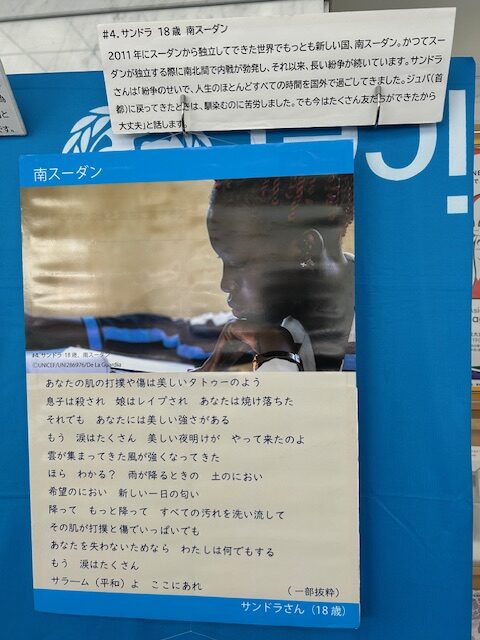 #4. サンドラ 18歳 南スーダン
2011年にスーダンから独立してできた世界でもっとも新しい国、南スーダン。かつてスー
ダンが独立する際に南北間で内戦が勃発し、それ以来、長い紛争が続いています。サンドラ
さんは「紛争のせいで、人生のほとんどすべての時間を国外で過ごしてきました。ジュバ(首
都)に戻ってきたときは、馴染むのに苦労しました。でも今はたくさん友だちができたから
大丈夫」と話します。
南スーダン
#4. サンドラ 18歳、南スーダン
©UNICEF/UNI286976/De La Guardia
あなたの肌の打撲や傷は美しいタトゥーのよう
息子は殺され 娘はレイプされ あなたは焼け落ちた
それでも あなたには美しい強さがある
もう 涙はたくさん 美しい夜明けが やって来たのよ
雲が集まってきた風が強くなってきた
ほら わかる? 雨が降るときの 土のにおい
希望のにおい 新しい一日の匂い
降って もっと降って すべての汚れを洗い流して
その肌が打撲と傷でいっぱいでも
あなたを失わないためなら わたしは何でもする
もう 涙はたくさん
サラーム(平和)よ ここにあれ
(一部抜粋)
サンドラさん(18歳)